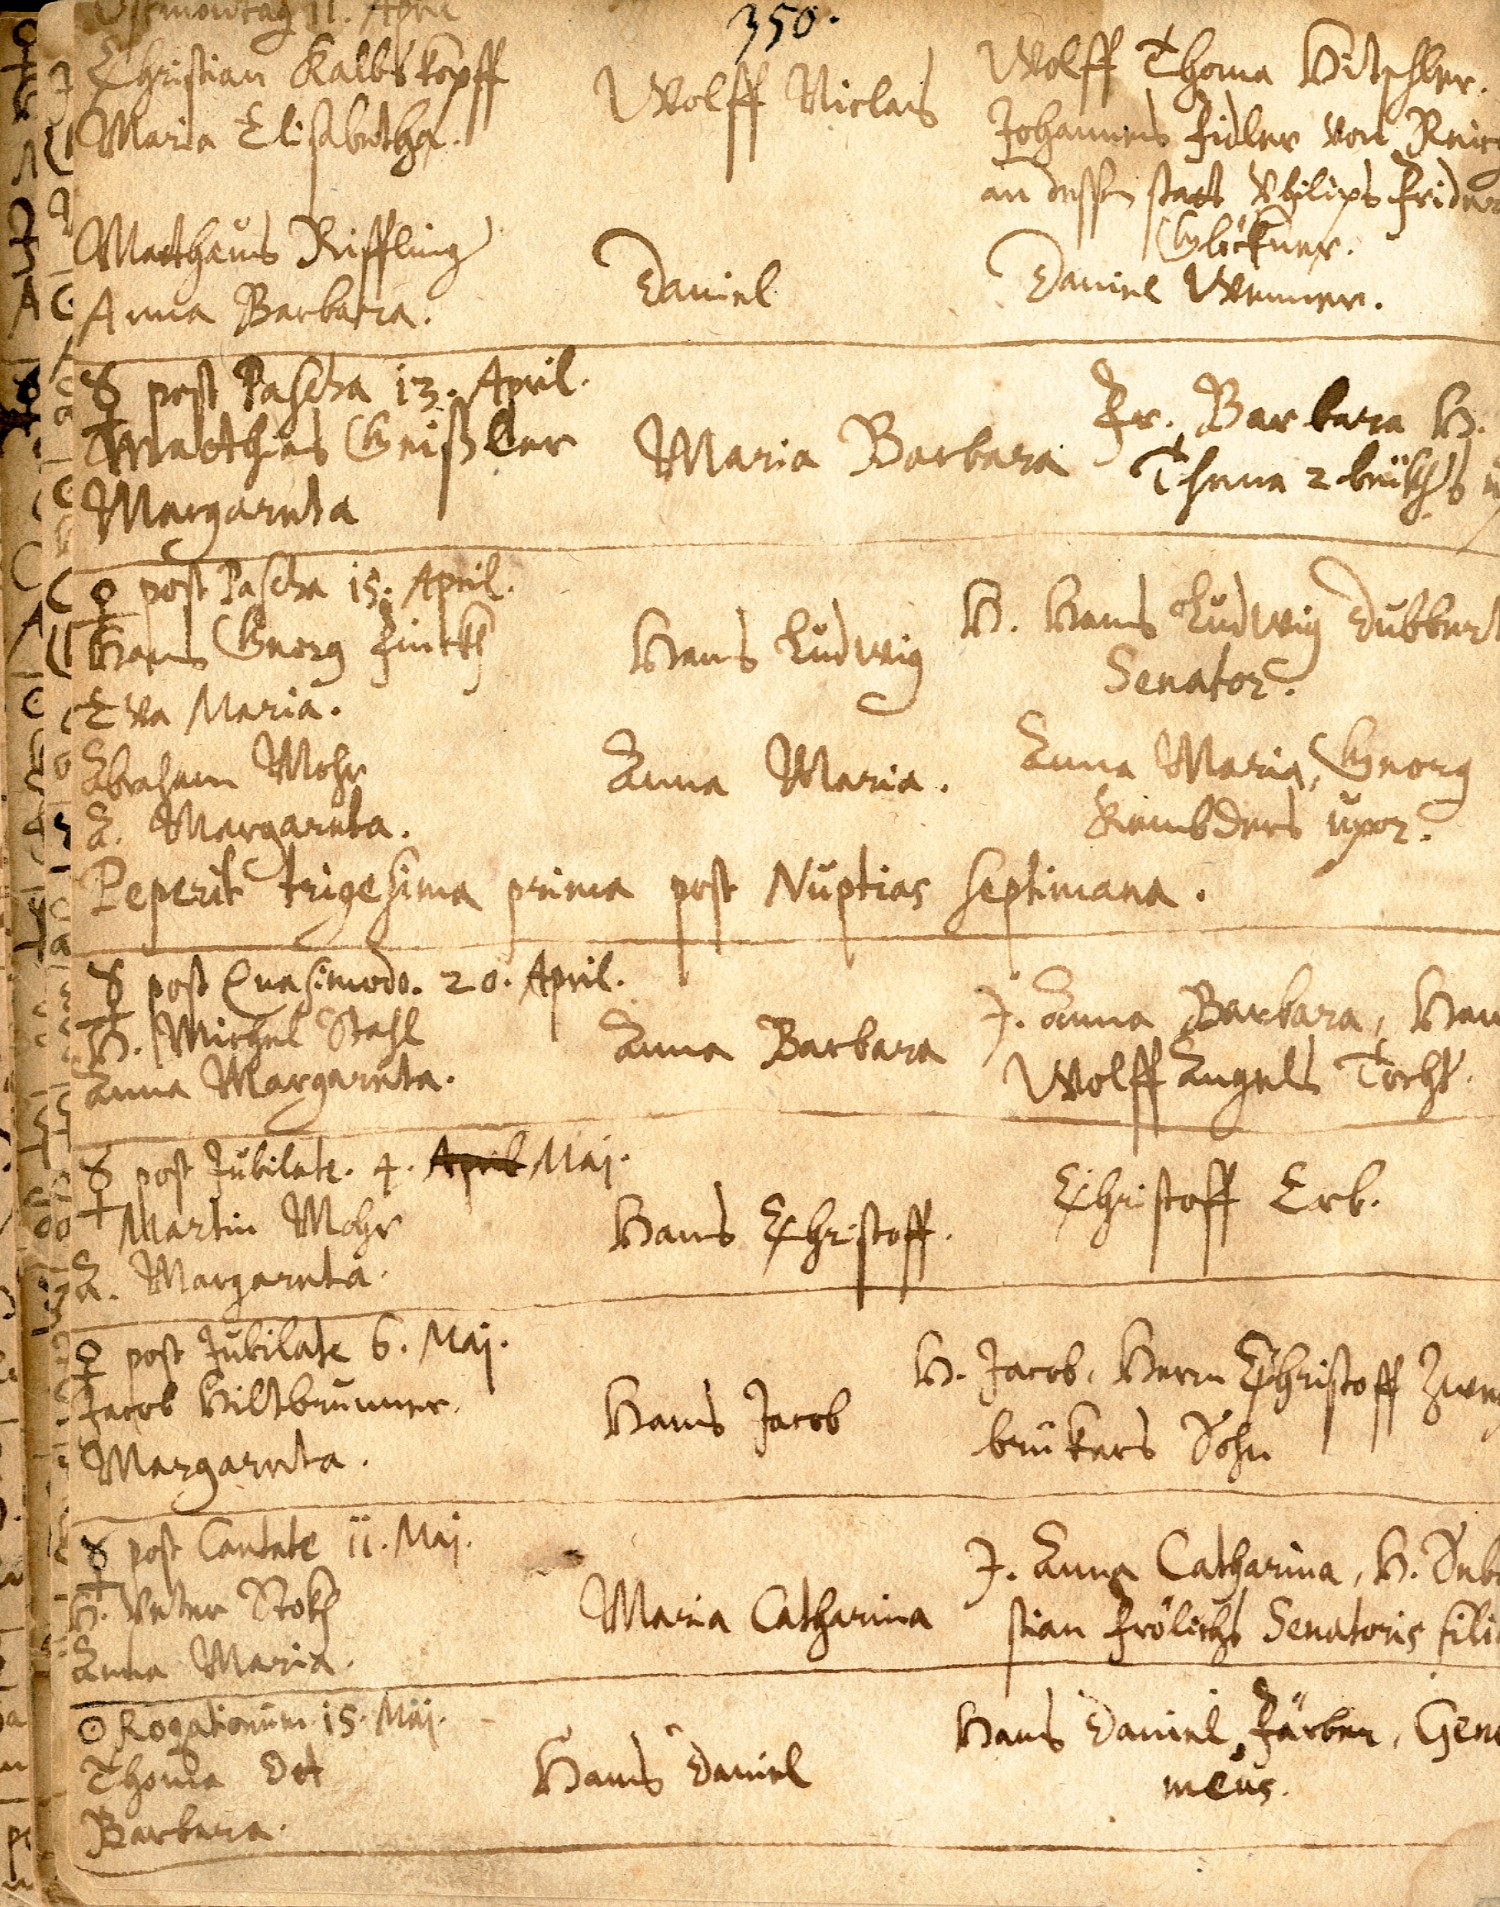 Ostmontag 11. April
350.
Christian Kalbskopff
Maria Elisabetha.
Wolff Niclas
Wolff Thoma Hitschler.
Johannes Fidler von
an dessen statt Philips
Glöckner.
Matthäus Riffling
Anna Barbara.
Daniel
Daniel Wenner.
☿ post Pascha 13. April.
Matthias Geißler
Margareta
Maria Barbara
Fr. Barbara H.
Thoma 2brükers
♀ post Pascha 15. April.
Hans Georg Finckh
Eva Maria.
Hans Ludwig
H. Hans Ludwig
Senator.
Abraham Mohr
A. Margareta.
Anna Maria.
Anna Maria, Georg
uxor.
Peperit trigesima prima post Nuptias septimana.
☿ post Quasimodo. 20. April.
H. Michel Stahl
Anna Margareta.
Anna Barbara
J. Anna Barbara,
Wolff Angels Tocht.
☿ post Jubilate. 4. April Maj.
Martin Mohr
A. Margareta.
Hans Christoff.
Christoff Erb.
♀ post Jubilate 6. Maj.
Jacob Hiltbrunner.
Margareta.
Hans Jacob
H. Jacob, Herrn Christoff
brükers Sohn
☿ post Cantate 11. Maj.
H. Peter Stokh
Anna Maria.
Maria Catharina
J. Anna Catharina, H. Seba
stian Frölichs Senatoris fili
☉ Rogationum 15. Maj.
Thoma Ott
Barbara.
Hans Daniel
Hans Daniel Färber, Gene
meus.